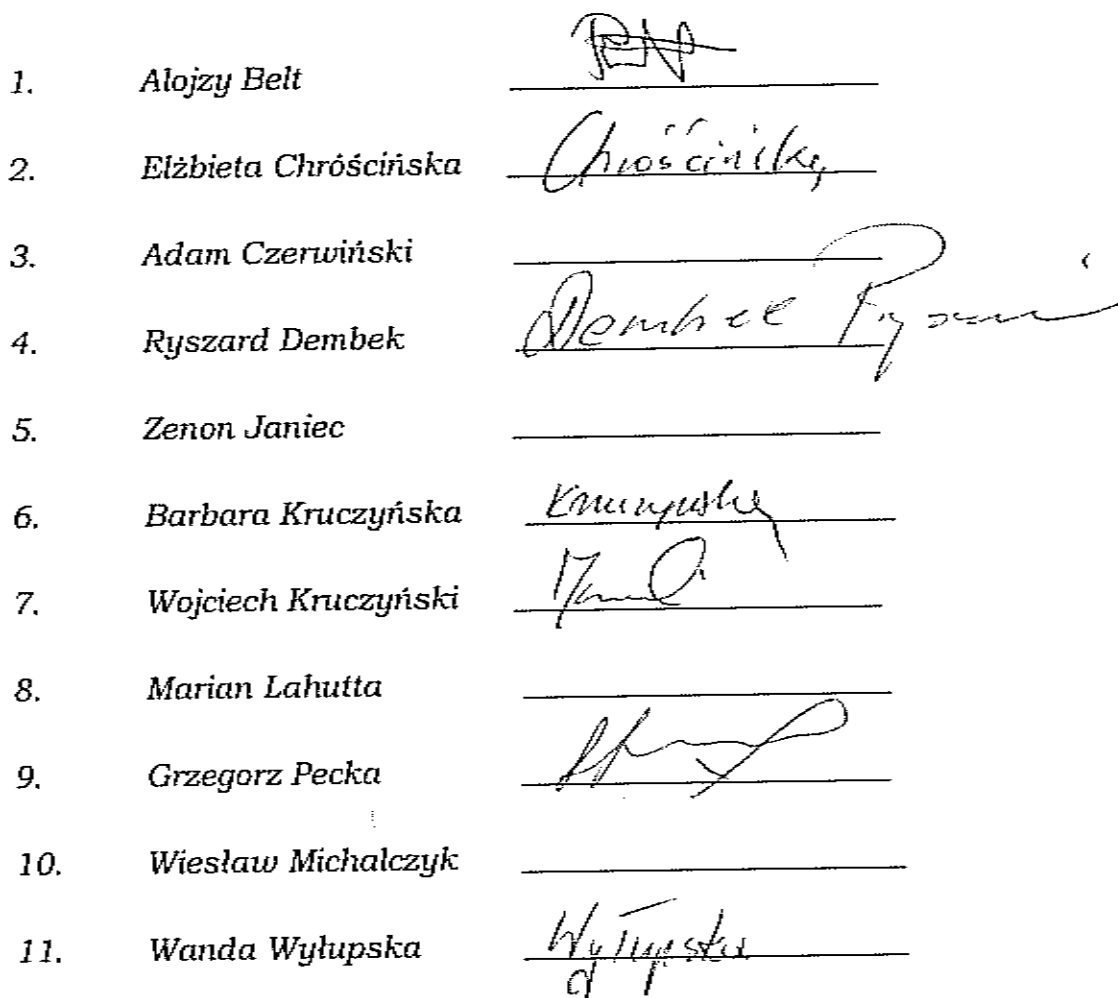 1. Alojzy Belt
2. Elżbieta Chróścińska Chróścińska
3. Adam Czerwiński
4. Ryszard Dembek Dembek
5. Zenon Janiec
6. Barbara Kruczyńska Kruczyńska
7. Wojciech Kruczyński
8. Marian Lahutta
9. Grzegorz Pecka
10. Wiesław Michalczyk
11. Wanda Wyłupska Wyłupska